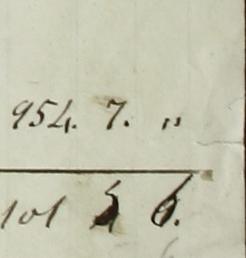 954. 7. "
101 5 6.